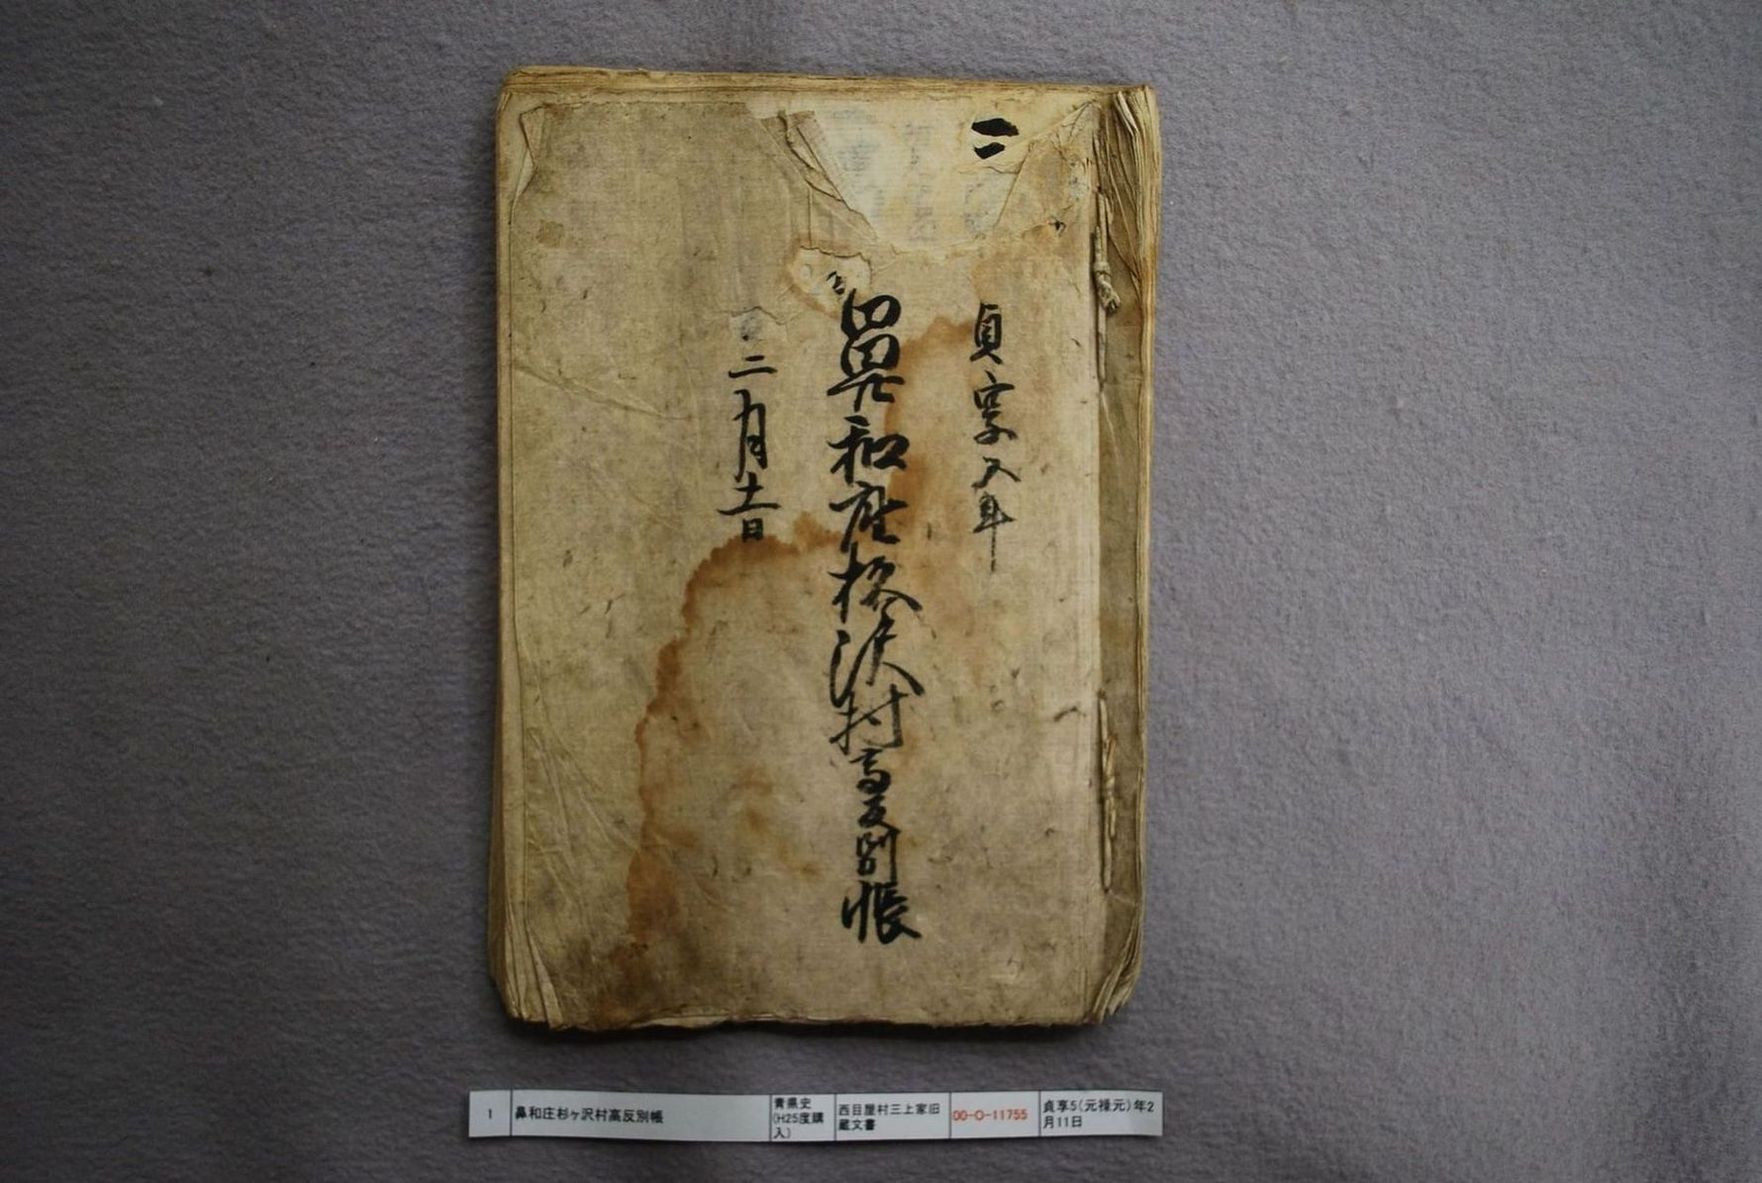 二
貞享五年
鼻和庄杦沢村高反別帳
二月十一日
1
鼻和庄杉ヶ沢村高反別帳
青県史
(H25度購
入)
西目屋村三上家旧
蔵文書
00-O-11755
貞享5(元禄元)年2
月11日